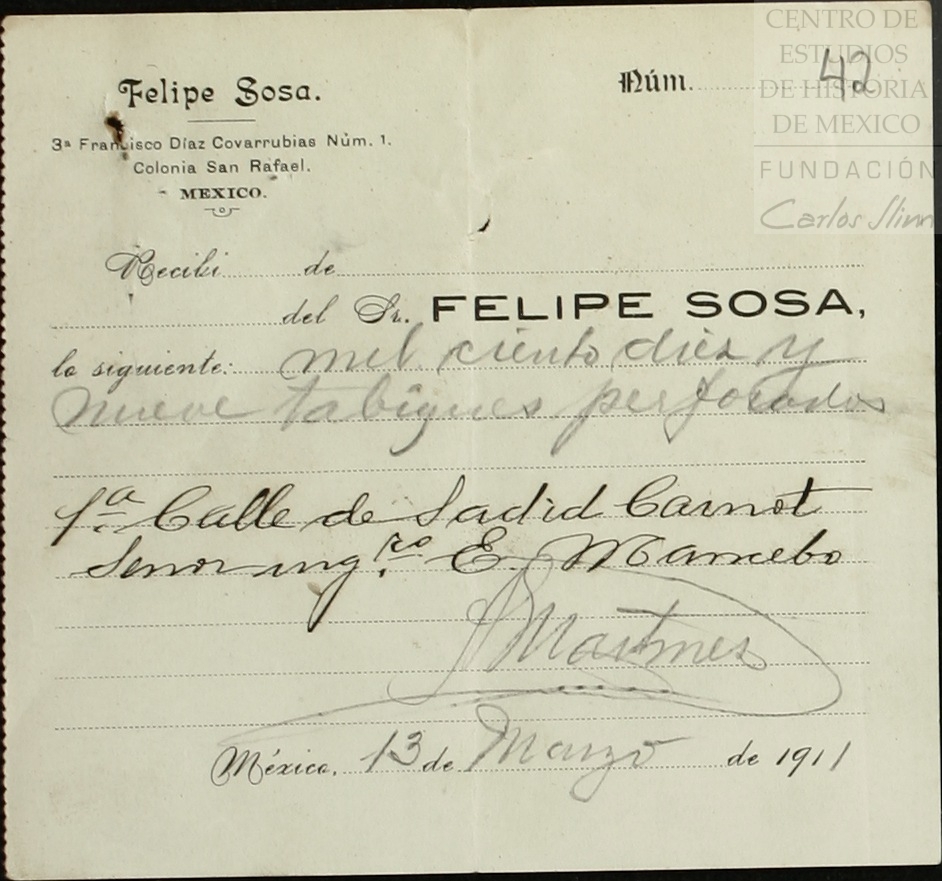 CENTRO DE
ESTUDIOS
DE HISTORIA
DE MEXICO
FUNDACIÓN
Carlos Slim
Felipe Sosa.
Núm. 42
3ª Francisco Díaz Covarrubias Núm. 1.
Colonia San Rafael.
MEXICO.
Recibí de
del Sr. FELIPE SOSA,
lo siguiente: mil ciento diez y
nueve tabiques perforados
1ª Calle de Sadid Carnot
Senor ingro. E. Mancebo
Martinez
México, 13 de Marzo de 1911